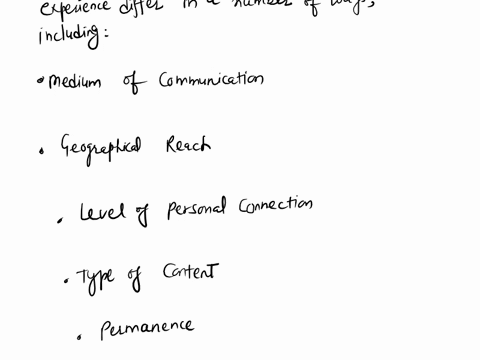 experience differ in a number of ways,
including:
• Medium of Communication
• Geographical Reach
• Level of Personal Connection
• Type of Content
• Permanence